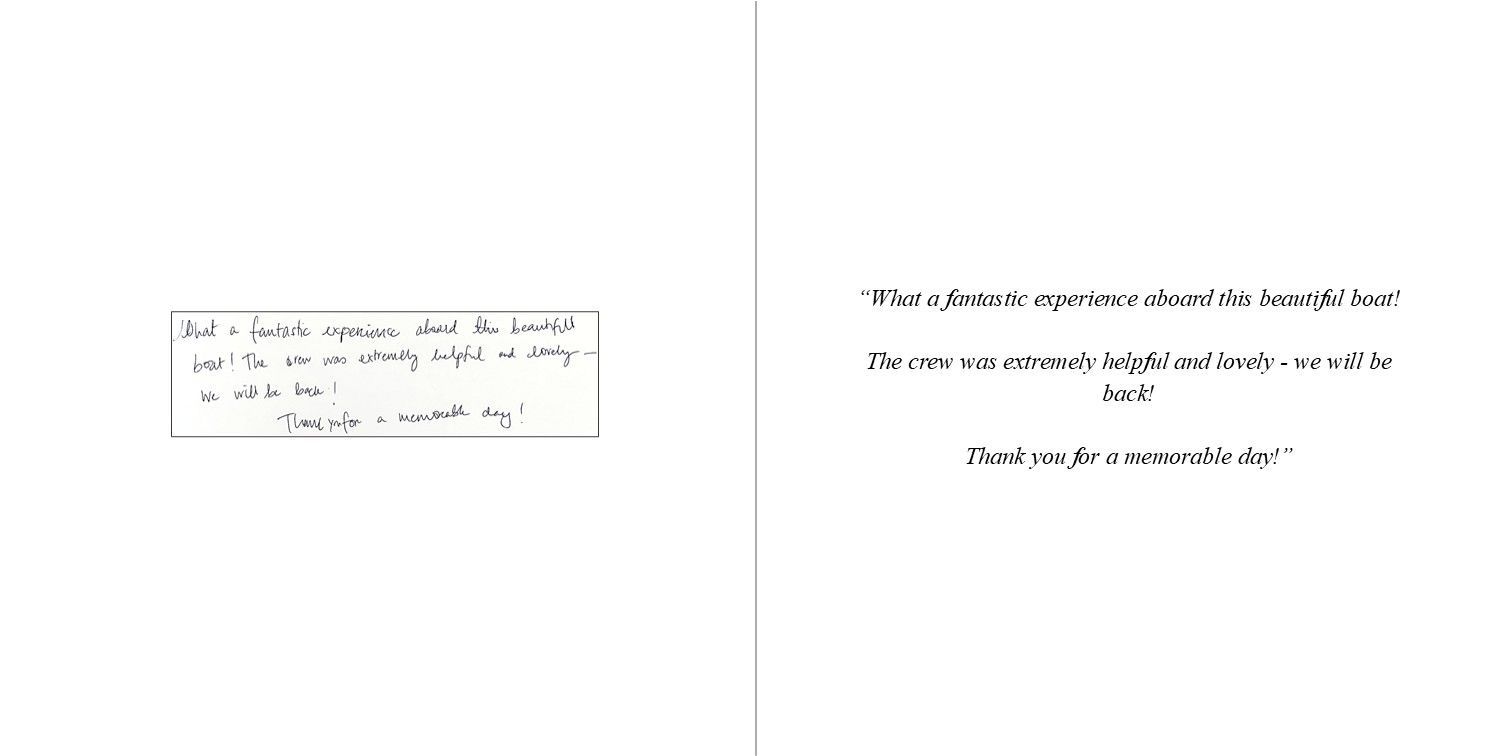 What a fantastic experience aboard this beautiful
boat! The crew was extremely helpful and lovely —
we will be back!
Thank you for a memorable day!
“What a fantastic experience aboard this beautiful boat!
The crew was extremely helpful and lovely - we will be
back!
Thank you for a memorable day!”